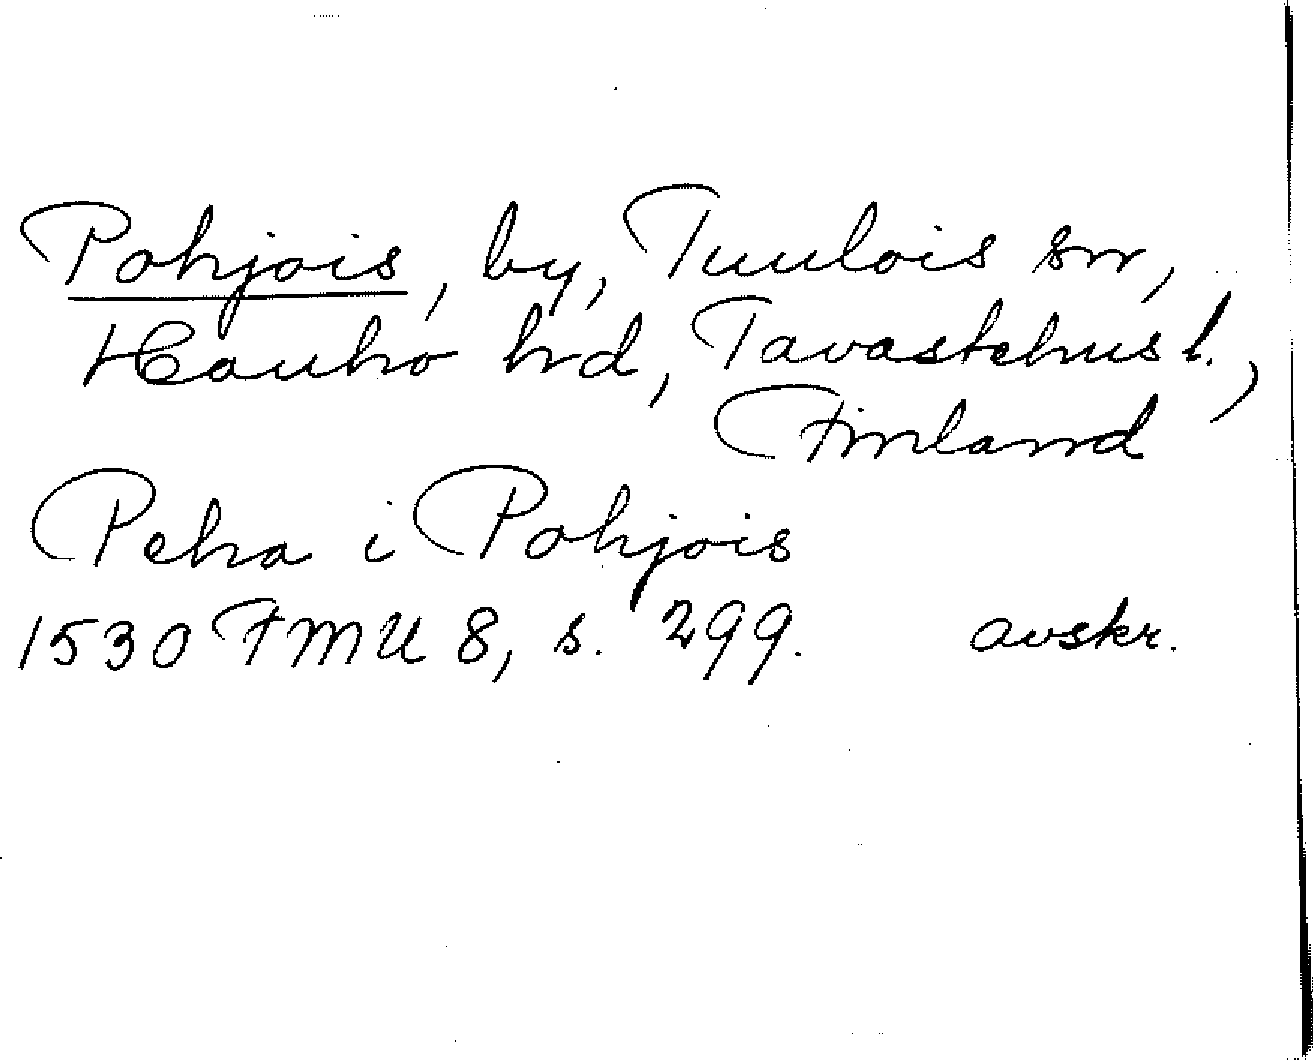 Pohjois, by, Tuulois sn,
Hauho hrd, Tavastehus l.,
Finland
Peha i Pohjois
1530 FMU 8, s. 299. avskr.